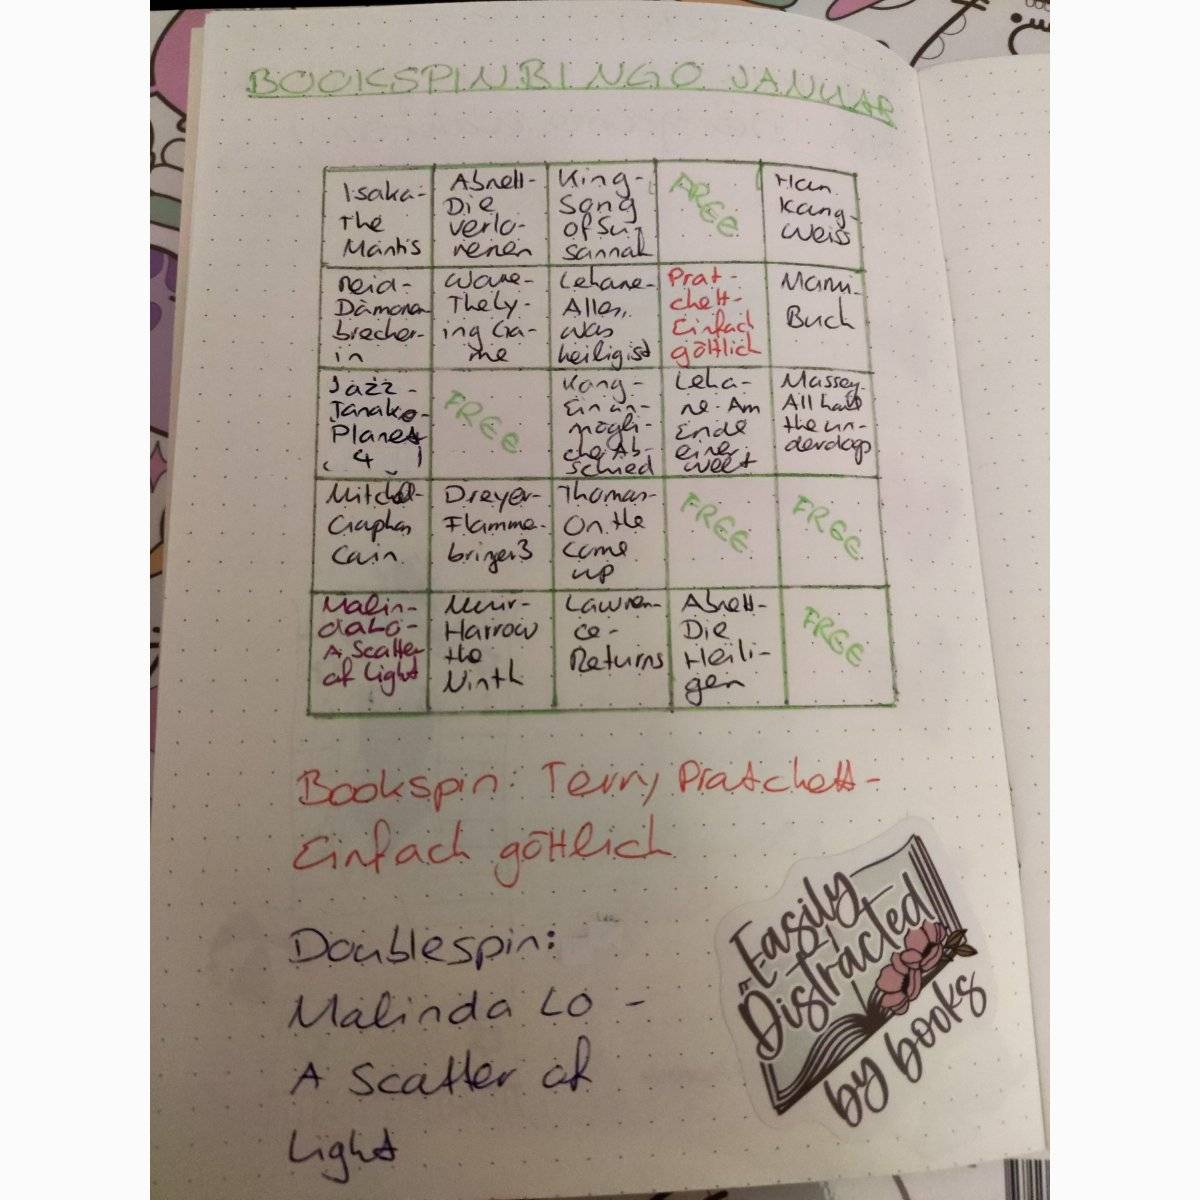 BOOKSPINBINGO JANUAR
Isaka-
The
Mantis
Abnett-
Die
verlo-
renen
King-
Song
of Su-
sannah
FREE
Han
Kang-
Weiss
Reid-
Dämonen
brecher-
in
Ware-
The Ly-
ing Ga-
me
Lehane-
Alles,
was
heilig ist
Prat-
chett-
Einfach
göttlich
Mann-
Buch
Jazz-
Tanako-
Planet
4
FREE
Kang-
Ein un-
mögli-
cher Ab-
schied
Leha-
ne-Am
Ende
einer
Welt
Massey-
All hail
the un-
derdogs
Mitchel-
Graphen
Cain
Dreyer-
Flamme-
bringer3
Thomas-
On the
come
up
FREE
FREE
Malin-
da Lo-
A Scatter
of Light
Muir-
Harrow
the
Ninth
Lawren-
ce-
Returns
Abnett-
Die
Heili-
gen
FREE
Bookspin: Terry Pratchett-
Einfach göttlich
Doublespin:
Malinda Lo -
A Scatter of
Light
Easily
Distracted
by books